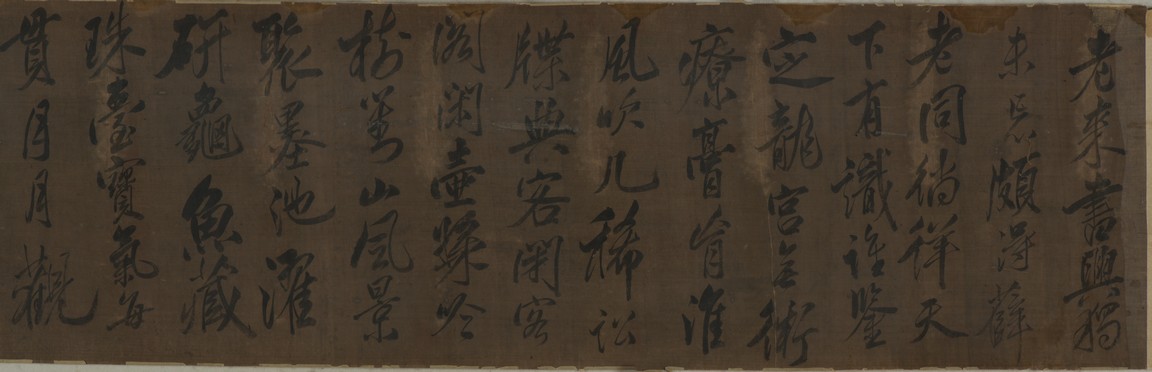 老來書興獨
未忘頗得薛
老同徜徉天
下有識誰鑒
定龍宮無術
療膏肓淮
風吹几稀訟
牒典客閑客
閣閑壺漿吟
樹對山風景
聚墨池濯
研龜魚藏
珠臺寶氣每
貫月月觀